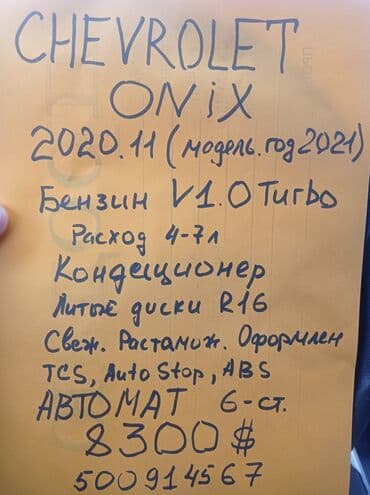 CHEVROLET
ONiX
2020.11 (модель.год 2021)
Бензин V1.0 Turbo
Расход 4-7л
Кондиционер
Литые диски R16
Свеж. Растамож. Оформлен
TCS, Auto Stop, ABS
АВТОМАТ 6-ст.
8300$
500914567